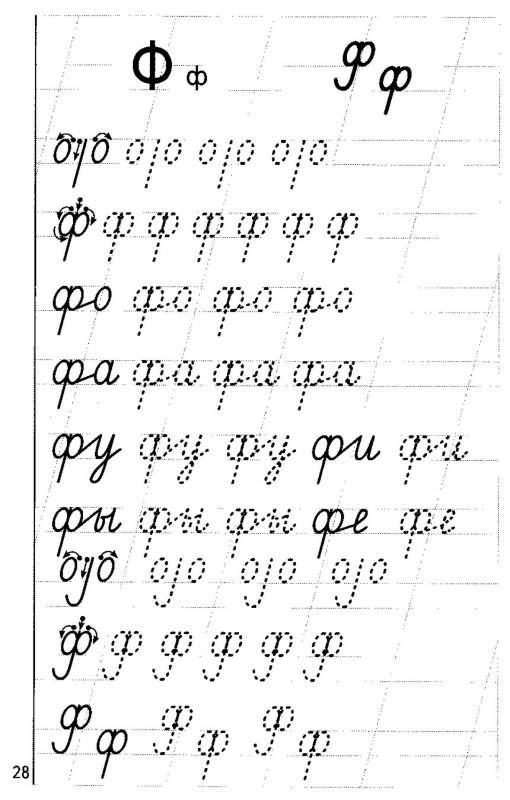 Ф ф Ф ф
о|о о|о о|о о|о
ф ф ф ф ф ф ф
фо фо фо фо
фа фа фа фа
фу фу фу фи фи
фы фы фы фе фе
оJо оJо оJо оJо
Ф Ф Ф Ф Ф Ф
Ф ф Ф ф Ф ф
28